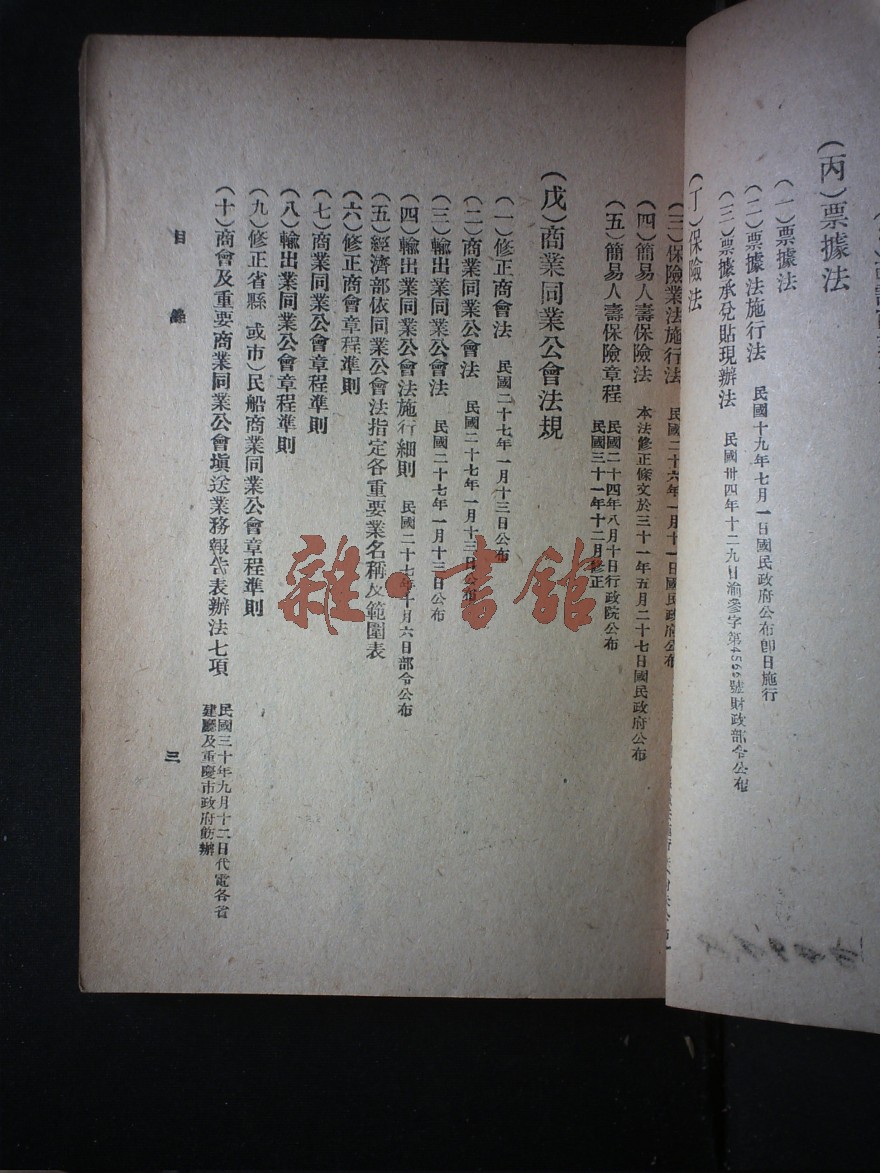 (丙)票據法
(一)票據法
(二)票據法施行法 民國十九年七月一日國民政府公布卽日施行
(三)票據承兌貼現辦法 民國卅四年十二九日渝參字第4566號財政部令公布
(丁)保險法
(三)保險業法施行法 民國二十六年一月十一日國民政府公布
(四)簡易人壽保險法 本法修正條文於三十一年五月二十七日國民政府公布
(五)簡易人壽保險章程 民國二十四年八月十日行政院公布
民國三十一年十二月修正
(戊)商業同業公會法規
(一)修正商會法 民國二十七年一月十三日公布
(二)商業同業公會法 民國二十七年一月十三日公布
(三)輸出業同業公會法 民國二十七年一月十三日公布
(四)輸出業同業公會法施行細則 民國二十七年十月六日部令公布
(五)經濟部依同業公會法指定各重要業名稱及範圍表
(六)修正商會章程準則
(七)商業同業公會章程準則
(八)輸出業同業公會章程準則
(九)修正省縣 或市)民船商業同業公會章程準則
(十)商會及重要商業同業公會塡送業務報告表辦法七項 民國三十年九月十二日代電各省
建廳及重慶市政府飭辦
目 錄
三
雜·書館